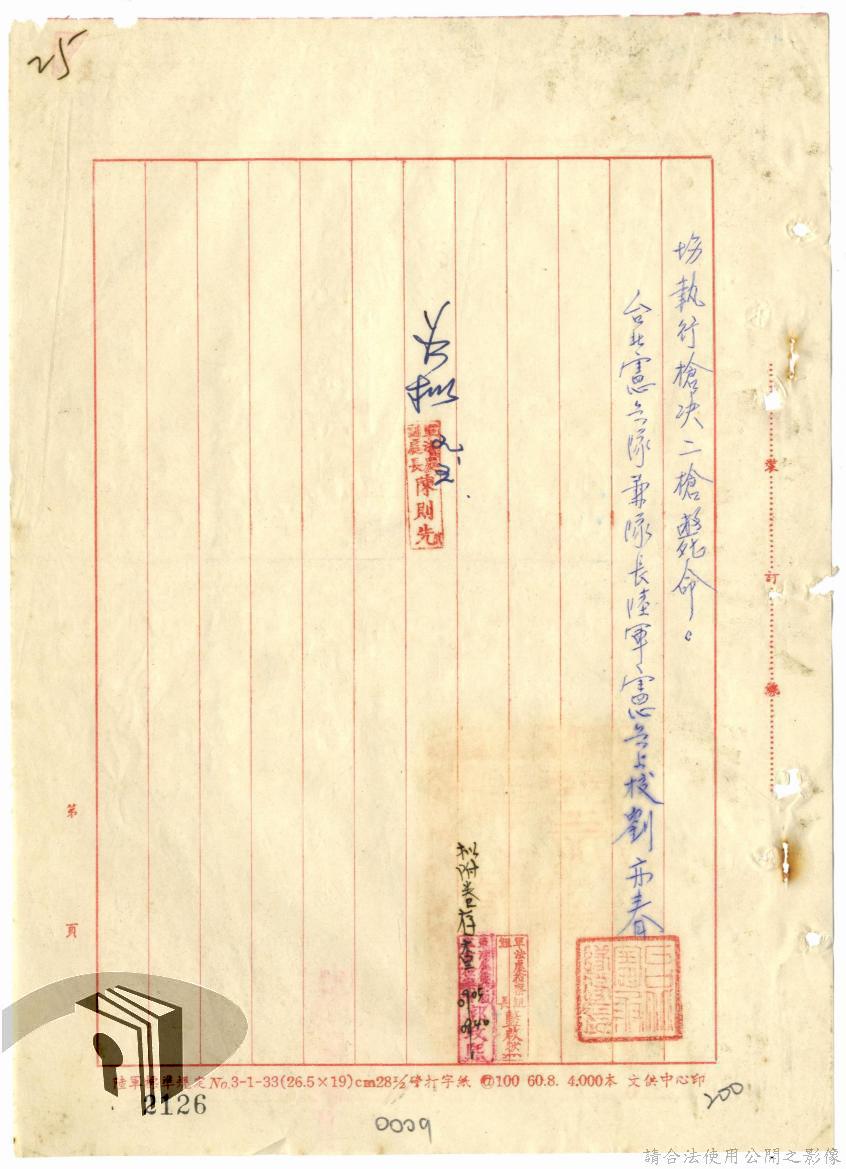 25
場執行槍決二槍斃命。
台北憲兵隊兼隊長陸軍憲兵上校劉亦春
裝
訂
線
如擬
軍法處
副處長陳則先
擬附卷存查
0905
0940
軍法處檢察組
組長
第
頁
陸軍標準規定No.3-1-33(26.5×19)cm28½磅打字紙 @100 60.8. 4.000本 文供中心印
2126
0029
200
請合法使用公開之影像